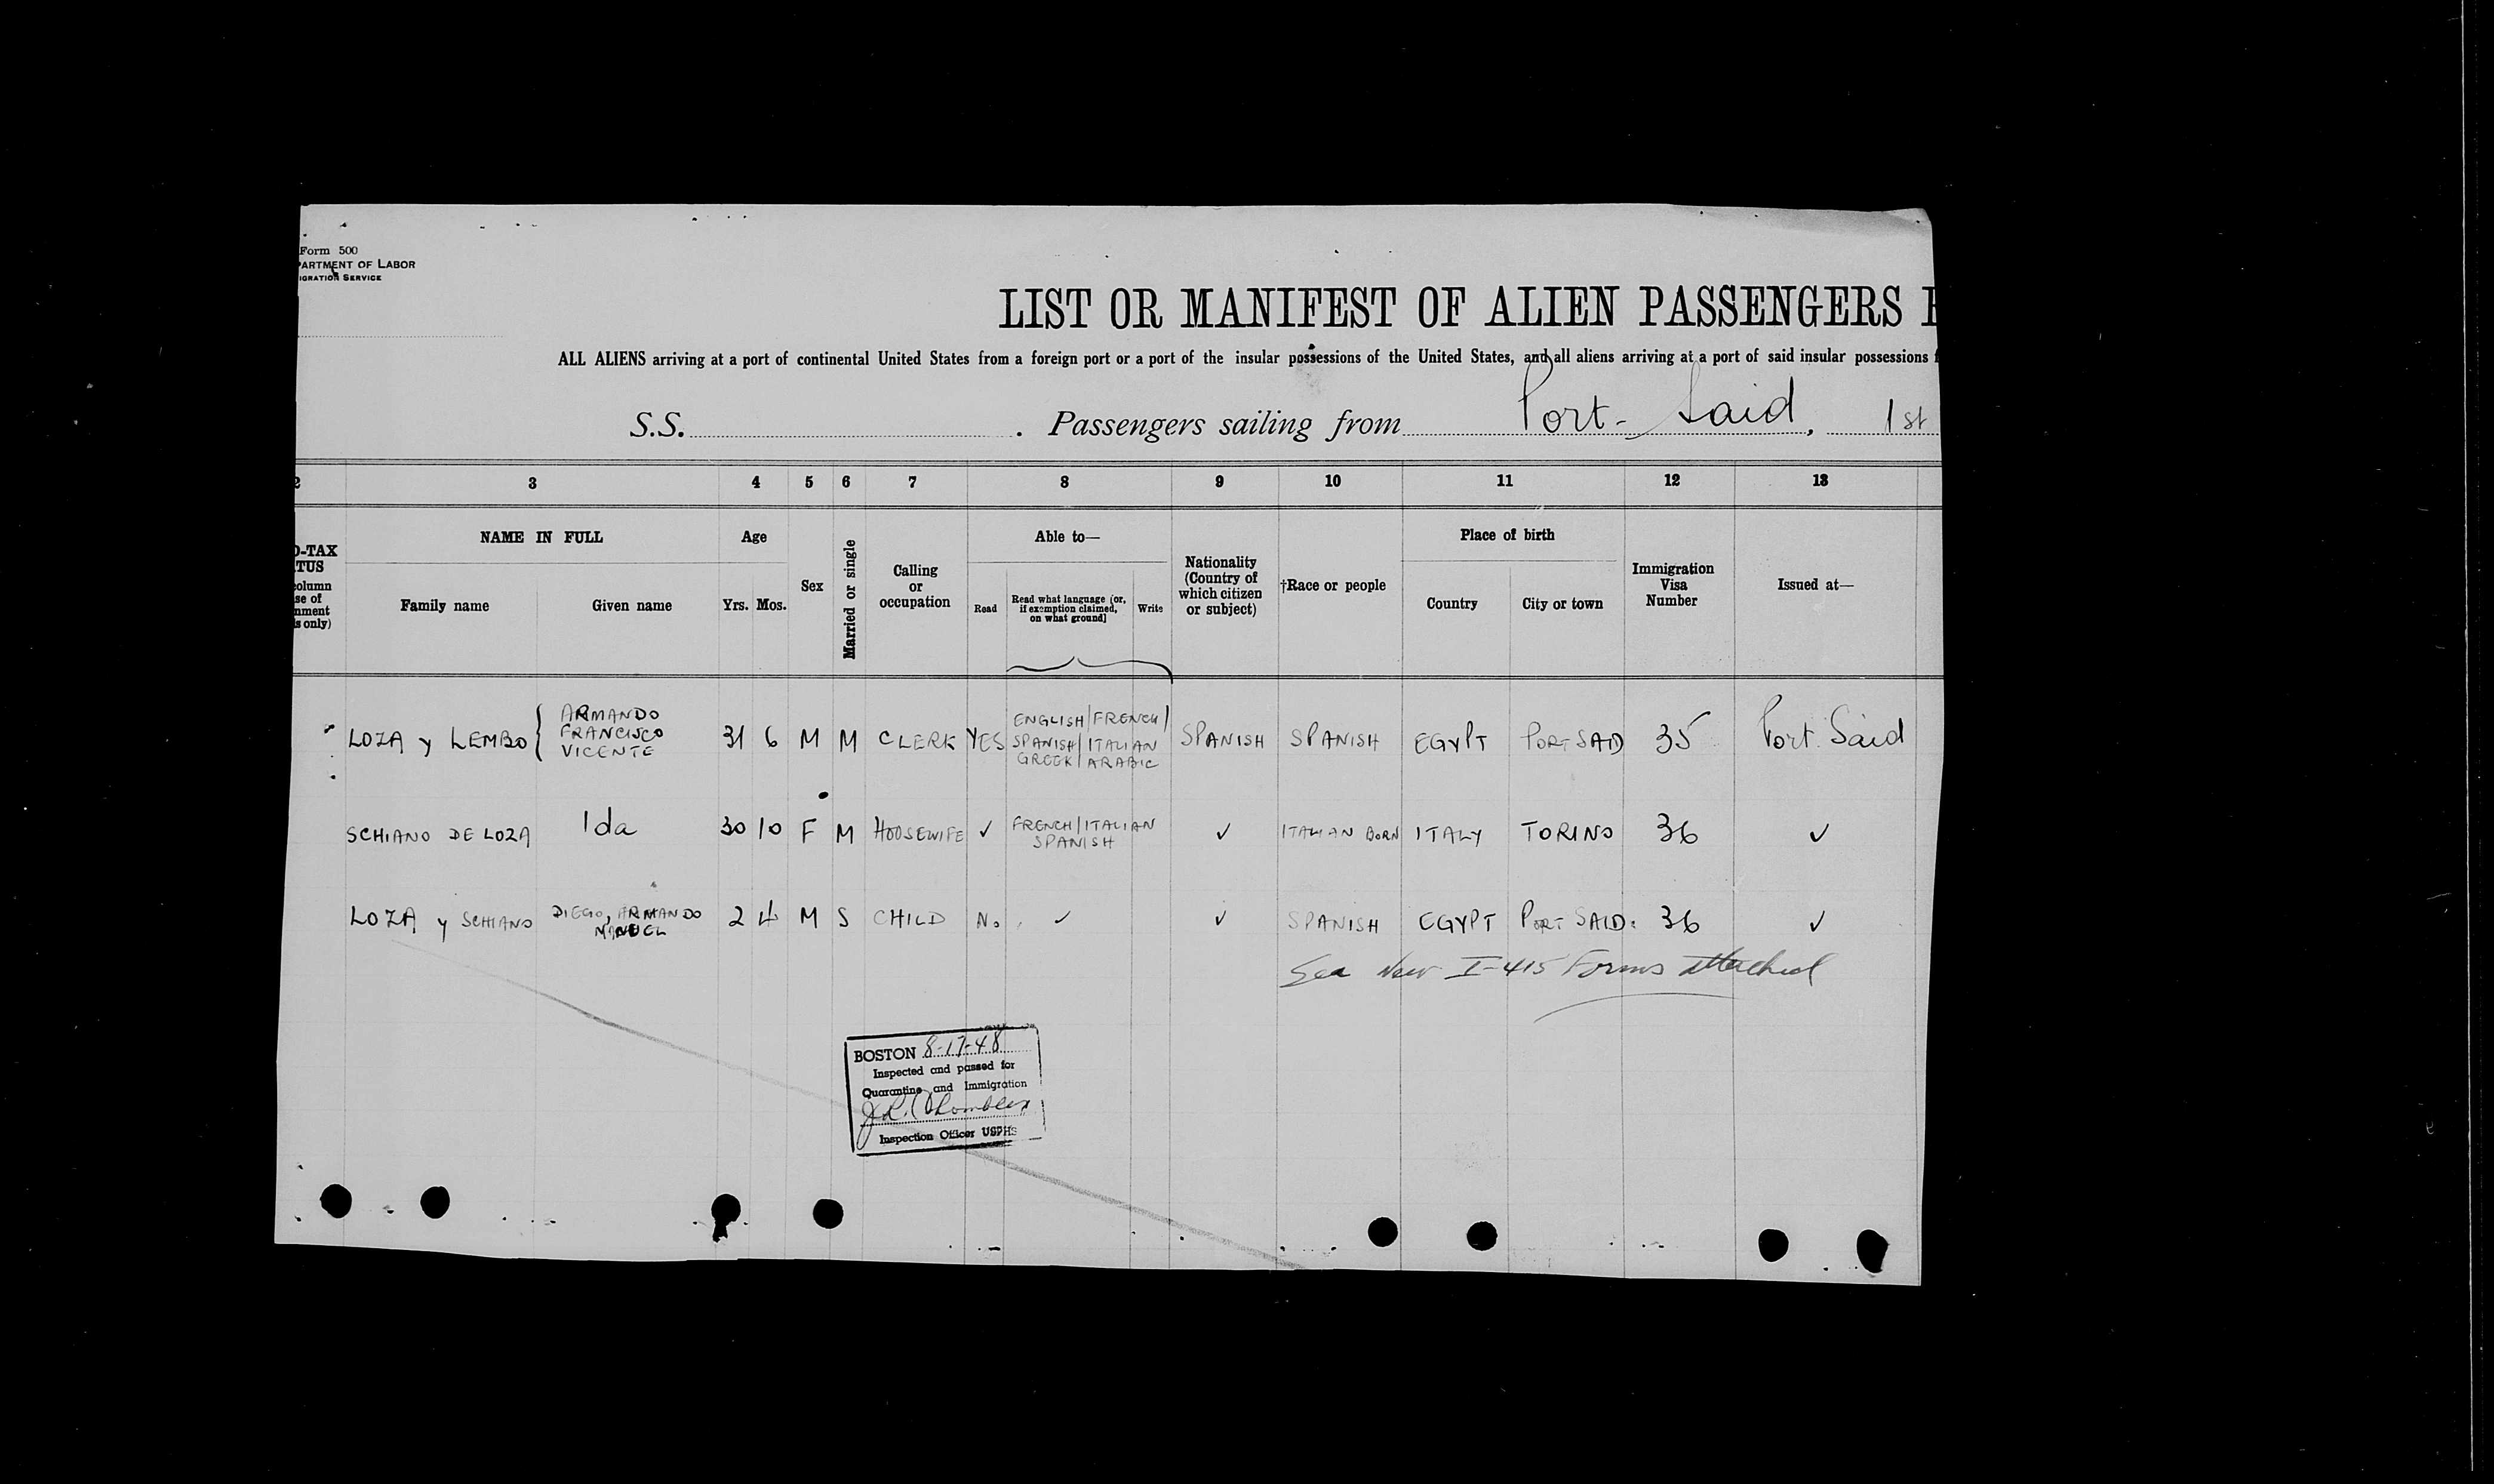 Form 500
PARTMENT OF LABOR
IGRATION SERVICE
LIST OR MANIFEST OF ALIEN PASSENGERS
ALL ALIENS arriving at a port of continental United States from a foreign port or a port of the insular possessions of the United States, and all aliens arriving at a port of said insular possessions
S.S. . Passengers sailing from Port-Said, 1st
2 3 4 5 6 7 8 9 10 11 12 13
O-TAX
TUS
column
se of
nment
s only)
NAME IN FULL
Family name Given name
Age
Yrs. Mos.
Sex
Married or single
Calling
or
occupation
Able to—
Read
Read what language (or,
if exemption claimed,
on what ground)
Write
Nationality
(Country of
which citizen
or subject)
†Race or people
Place of birth
Country City or town
Immigration
Visa
Number
Issued at—
LOZA y LEMBO { ARMANDO FRANCISCO VICENTE 31 6 M M CLERK YES ENGLISH/FRENCH/ SPANISH/ITALIAN GREEK/ARABIC SPANISH SPANISH EGYPT PORT SAID 35 Port Said
SCHIANO DE LOZA Ida 30 10 F M HOUSEWIFE ✓ FRENCH/ITALIAN SPANISH ✓ ITALIAN BORN ITALY TORINO 36 ✓
LOZA y SCHIANO DIEGO, ARMANDO MANUEL 2 4 M S CHILD No ✓ ✓ SPANISH EGYPT PORT SAID. 36 ✓
See New I-415 Forms attached
BOSTON 8-17-48
Inspected and passed for
Quarantine and Immigration
Inspection Officer USPHS